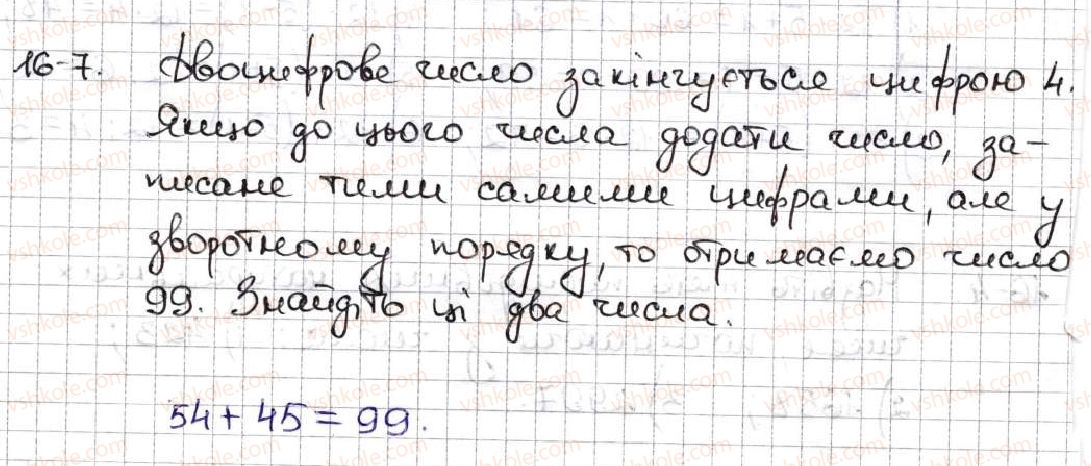 16-7. Двоцифрове число закінчується цифрою 4.
Якщо до цього числа додати число, за-
писане тими самими цифрами, але у
зворотному порядку, то отримаємо число
99. Знайдіть ці два числа.
54 + 45 = 99.